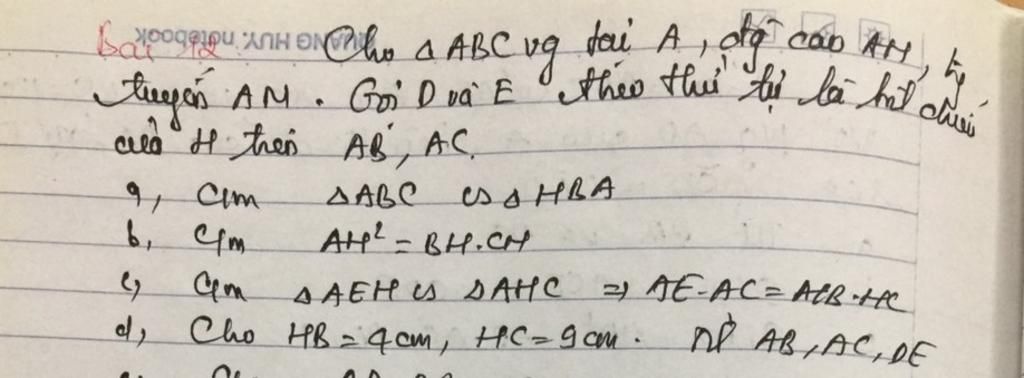 Bài 12 Cho △ ABC vg tại A, đg cao AH, tg
tuyến AM. Gọi D và E theo thứ tự là hH chiếu
của H trên AB, AC.
a, Cm △ABC ∽ △ HBA
b, Cm AH² = BH.CH
c, Cm △AEH ∽ △AHC ⇒ AE.AC = HB.HC
d, Cho HB = 4cm, HC = 9cm. AB, AC, DE